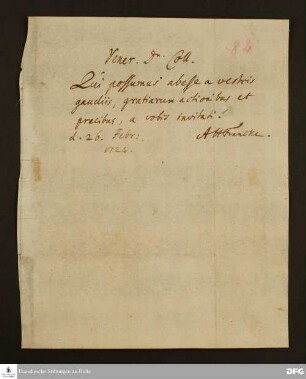 Vener. Dn. Coll.
82
Qui possumus abesse a vestris
gaudiis, gratiarum actionibus et
precibus, a vobis invitati?
d. 26. Febr:
AHFrancke.
1722.
Franckesche Stiftungen zu Halle
DFG